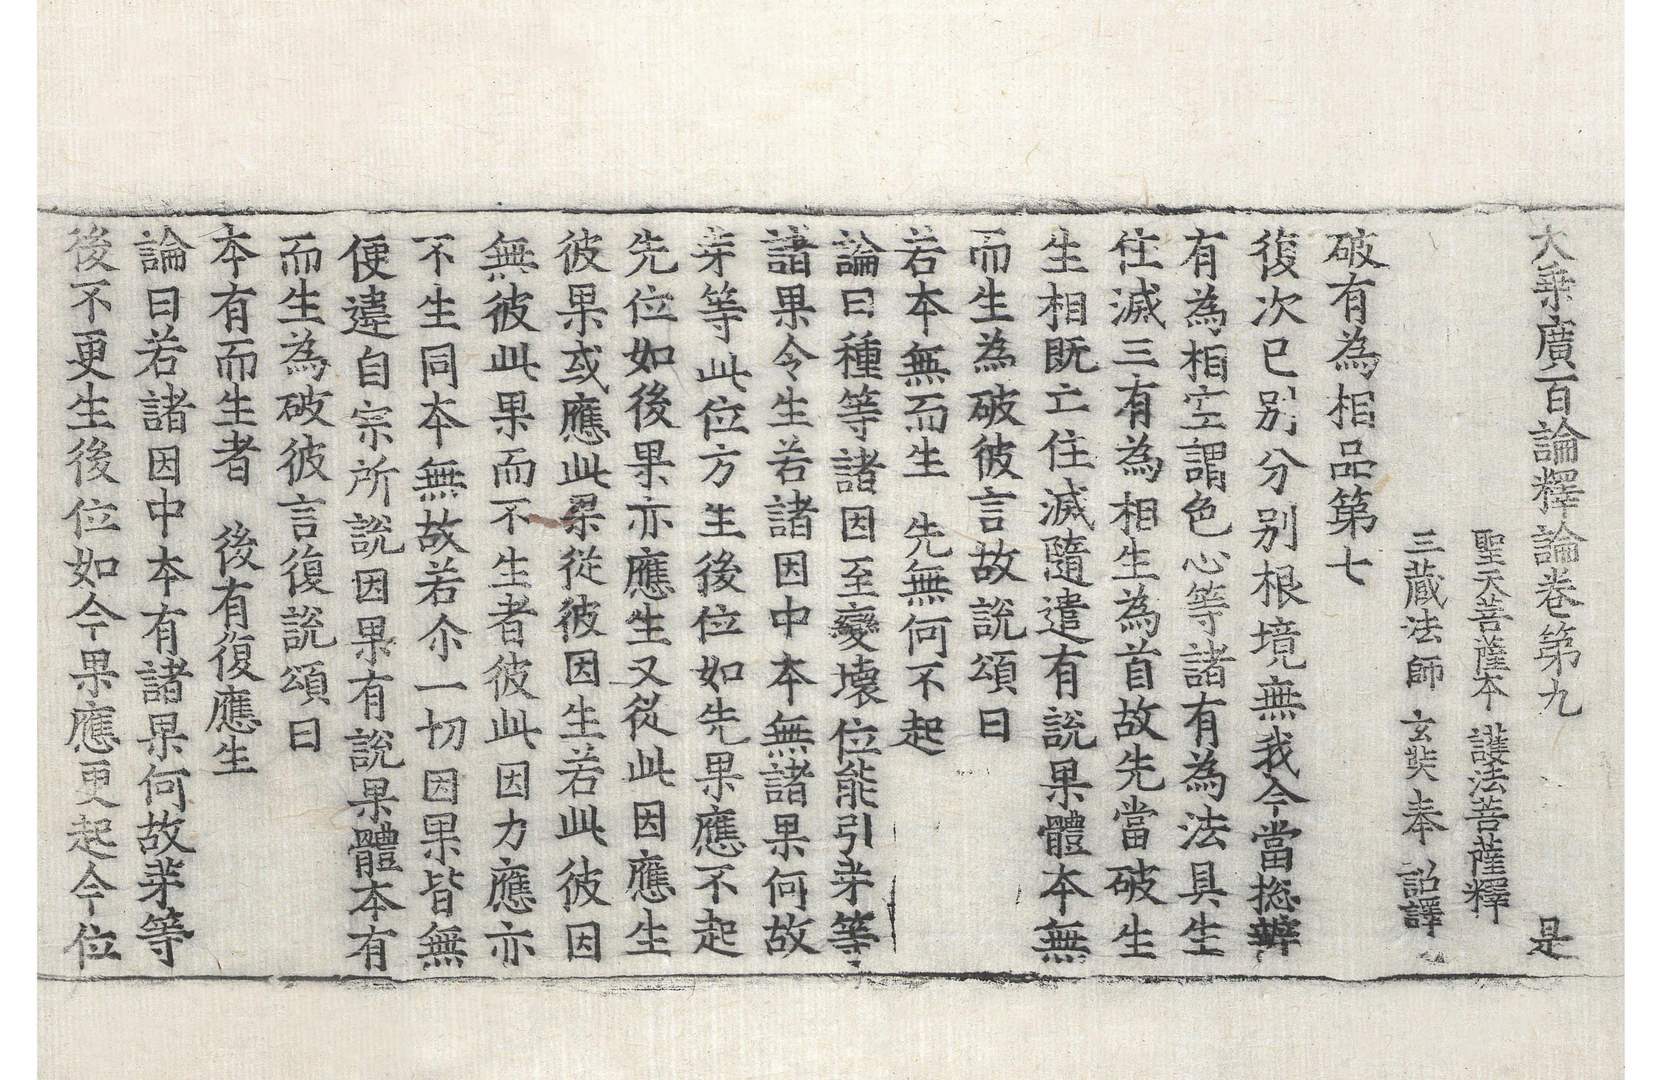 大乘廣百論釋論卷第九 是
聖天菩薩本 護法菩薩釋
三藏法師 玄奘奉 詔譯
破有為相品第七
復次已別分別根境無我今當捴辯
有為相空謂色心等諸有為法具生
住滅三有為相生為首故先當破生
生相既亡住滅隨遣有說果體本無
而生為破彼言故說頌曰
若本無而生 先無何不起
論曰種等諸因至變壞位能引芽等
諸果令生若諸因中本無諸果何故
芽等此位方生後位如先果應不起
先位如後果亦應生又從此因應生
彼果或應此果從彼因生若此彼因
無彼此果而不生者彼此因力應亦
不生同本無故若尒一切因果皆無
便違自宗所說因果有說果體本有
而生為破彼言復說頌曰
本有而生者 後有復應生
論曰若諸因中本有諸果何故芽等
後不更生後位如今果應更起今位